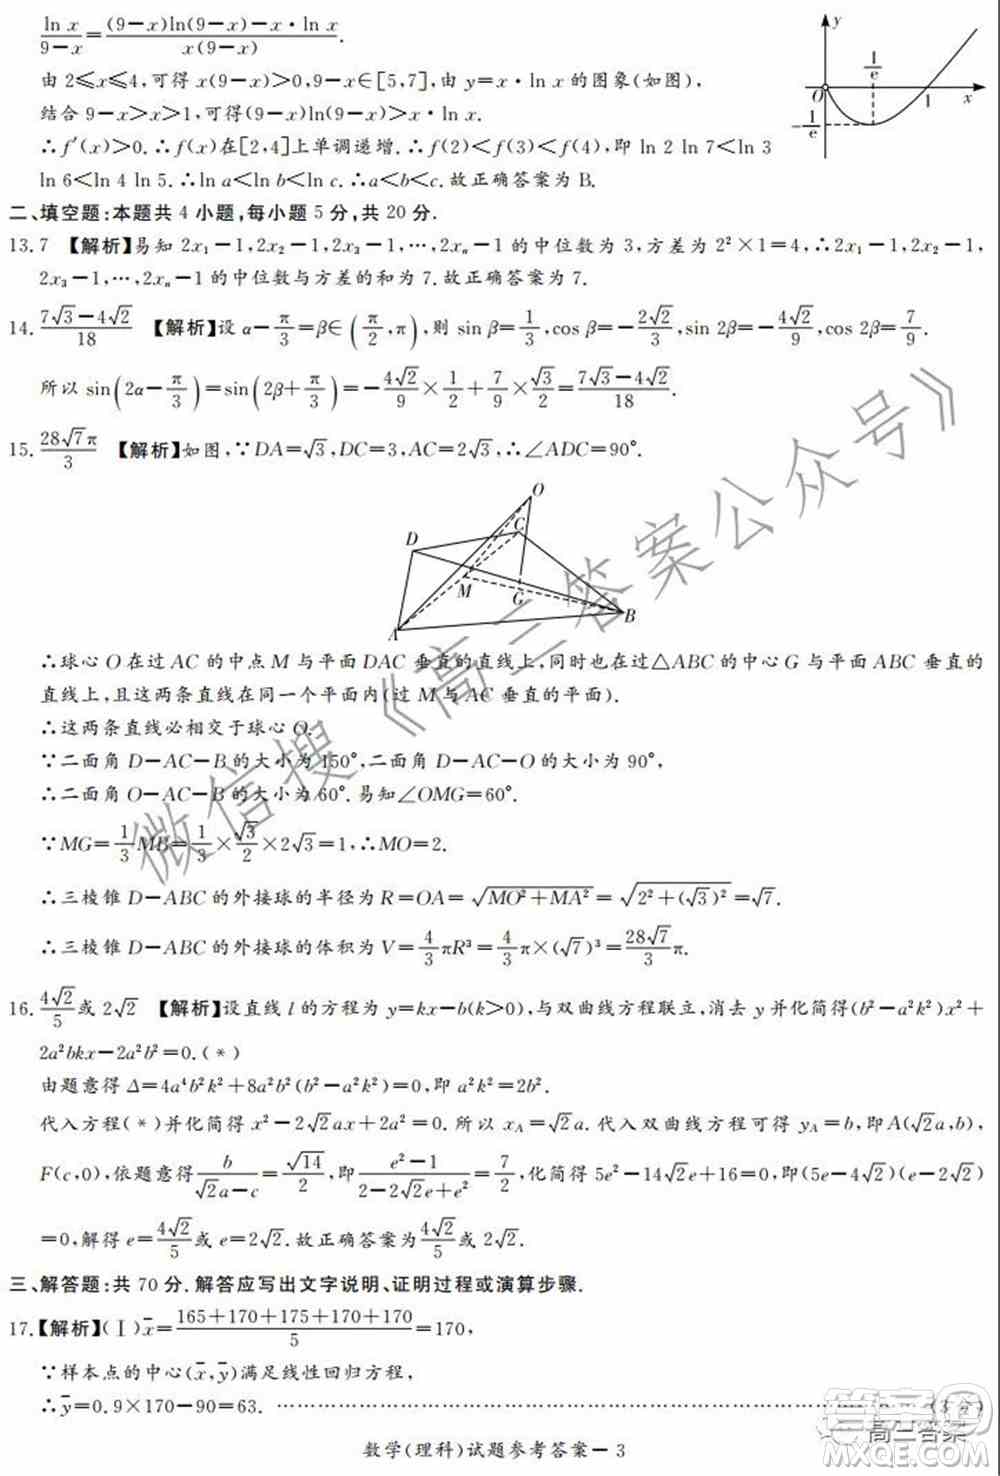 ln x/(9−x)=((9−x)ln(9−x)−x·ln x)/(x(9−x)).
由 2≤x≤4,可得 x(9−x)>0,9−x∈[5,7],由 y=x·ln x 的图象(如图),
结合 9−x>x>1,可得(9−x)ln(9−x)>x·ln x.
∴f′(x)>0.∴f(x)在[2,4]上单调递增.∴f(2)<f(3)<f(4),即 ln 2 ln 7<ln 3
ln 6<ln 4 ln 5.∴ln a<ln b<ln c.∴a<b<c.故正确答案为 B.
y
1/e
O
1
x
−1/e
二、填空题:本题共 4 小题,每小题 5 分,共 20 分.
13.7 【解析】易知 2x₁−1,2x₂−1,2x₃−1,…,2xₙ−1 的中位数为 3,方差为 2²×1=4,∴2x₁−1,2x₂−1,
2x₃−1,…,2xₙ−1 的中位数与方差的和为 7.故正确答案为 7.
14.(7√3−4√2)/18 【解析】设 α−π/3=β∈(π/2,π),则 sin β=1/3,cos β=−2√2/3,sin 2β=−4√2/9,cos 2β=7/9.
所以 sin(2α−π/3)=sin(2β+π/3)=−4√2/9×1/2+7/9×√3/2=(7√3−4√2)/18.
15.28√7π/3 【解析】如图,∵DA=√3,DC=3,AC=2√3,∴∠ADC=90°.
O
C
D
M
G
B
A
∴球心 O 在过 AC 的中点 M 与平面 DAC 垂直的直线上,同时也在过△ABC 的中心 G 与平面 ABC 垂直的
直线上,且这两条直线在同一个平面内(过 M 与 AC 垂直的平面).
∴这两条直线必相交于球心 O.
∵二面角 D−AC−B 的大小为 150°,二面角 D−AC−O 的大小为 90°,
∴二面角 O−AC−B 的大小为 60°.易知∠OMG=60°.
∵MG=1/3 MB=1/3×√3/2×2√3=1,∴MO=2.
∴三棱锥 D−ABC 的外接球的半径为 R=OA=√(MO²+MA²)=√(2²+(√3)²)=√7.
∴三棱锥 D−ABC 的外接球的体积为 V=4/3πR³=4/3π×(√7)³=28√7/3 π.
16.4√2/5或 2√2 【解析】设直线 l 的方程为 y=kx−b(k>0),与双曲线方程联立,消去 y 并化简得(b²−a²k²)x²+
2a²bkx−2a²b²=0.(*)
由题意得 Δ=4a⁴b²k²+8a²b²(b²−a²k²)=0,即 a²k²=2b².
代入方程(*)并化简得 x²−2√2ax+2a²=0.所以 x_A=√2a.代入双曲线方程可得 y_A=b,即A(√2a,b),
F(c,0),依题意得 b/(√2a−c)=√14/2,即 (e²−1)/(2−2√2e+e²)=7/2,化简得 5e²−14√2e+16=0,即(5e−4√2)(e−2√2)
=0,解得 e=4√2/5或 e=2√2.故正确答案为4√2/5或 2√2.
三、解答题:共 70 分.解答应写出文字说明、证明过程或演算步骤.
17.【解析】(Ⅰ)x̄=(165+170+175+170+170)/5=170,
∵样本点的中心(x̄,ȳ)满足线性回归方程,
∴ȳ=0.9×170−90=63. ……………………(3分)
数学(理科)试题参考答案−3
微信搜《高三答案公众号》
高三答案